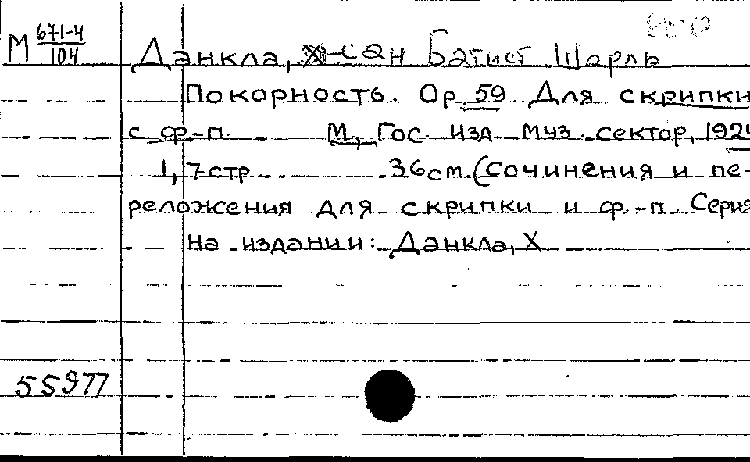 М 671-4/104
Данкла, Жан Батист Шарль
Покорность. Ор 59 Для скрипки
с ф-п. М, Гос изд муз. сектор,
1, 7стр. 36см. (Сочинения и пе-
реложения для скрипки и ф.-п. Серия
На издании: Данкла, Х
55977